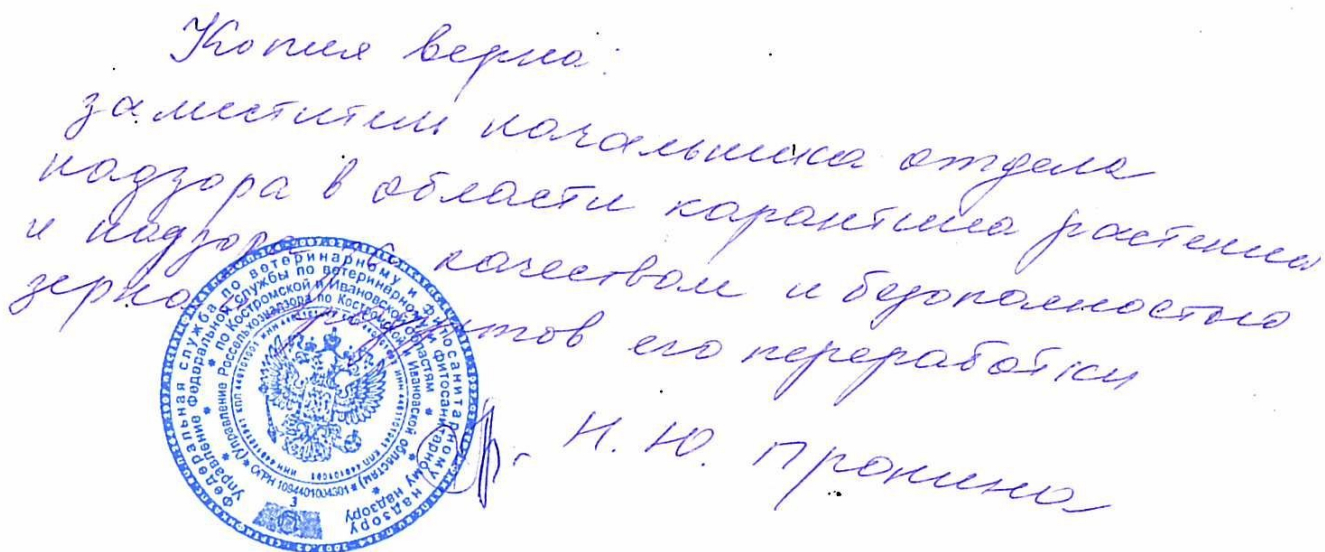 Копия верна:
заместитель начальника отдела
надзора в области карантина растений
и надзора за качеством и безопасностью
зерна продуктов его переработки
Н. Ю. Пронина
Федеральная служба по ветеринарному и фитосанитарному надзору
Управление Федеральной службы по ветеринарному и фитосанитарному надзору
по Костромской и Ивановской областям
(Управление Россельхознадзора по Костромской и Ивановской областям)
ОГРН 1094401004301
3